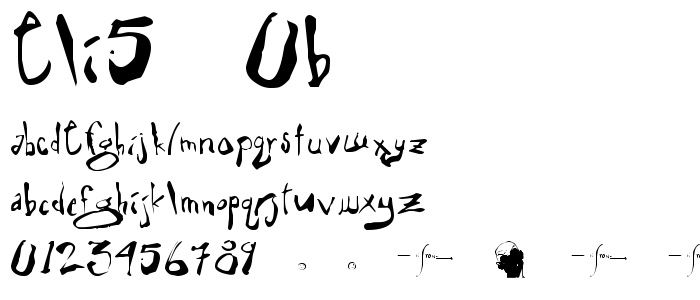 eli5 Ub
abcdefghijklmnopqrstuvwxyz
abcdefghijklmnopqrstuvwxyz
0123456789